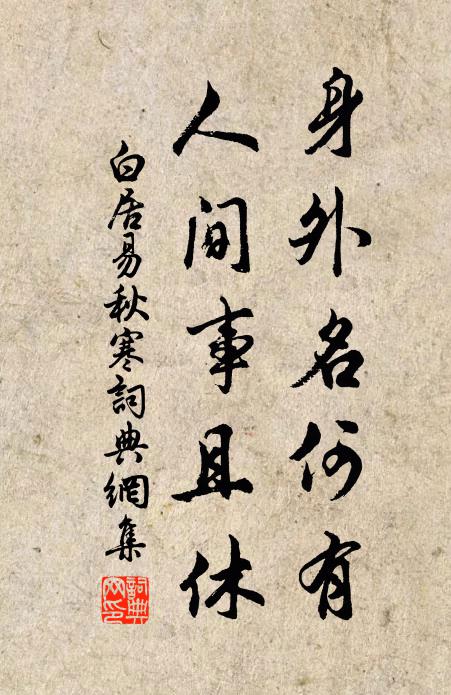 身外名何有
人间事且休
白居易秋寒詞典網集
詞典网印